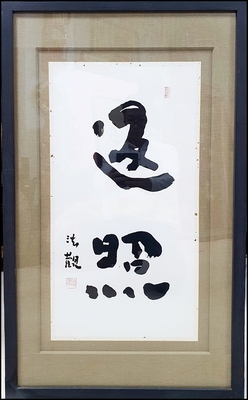 返照
法觀